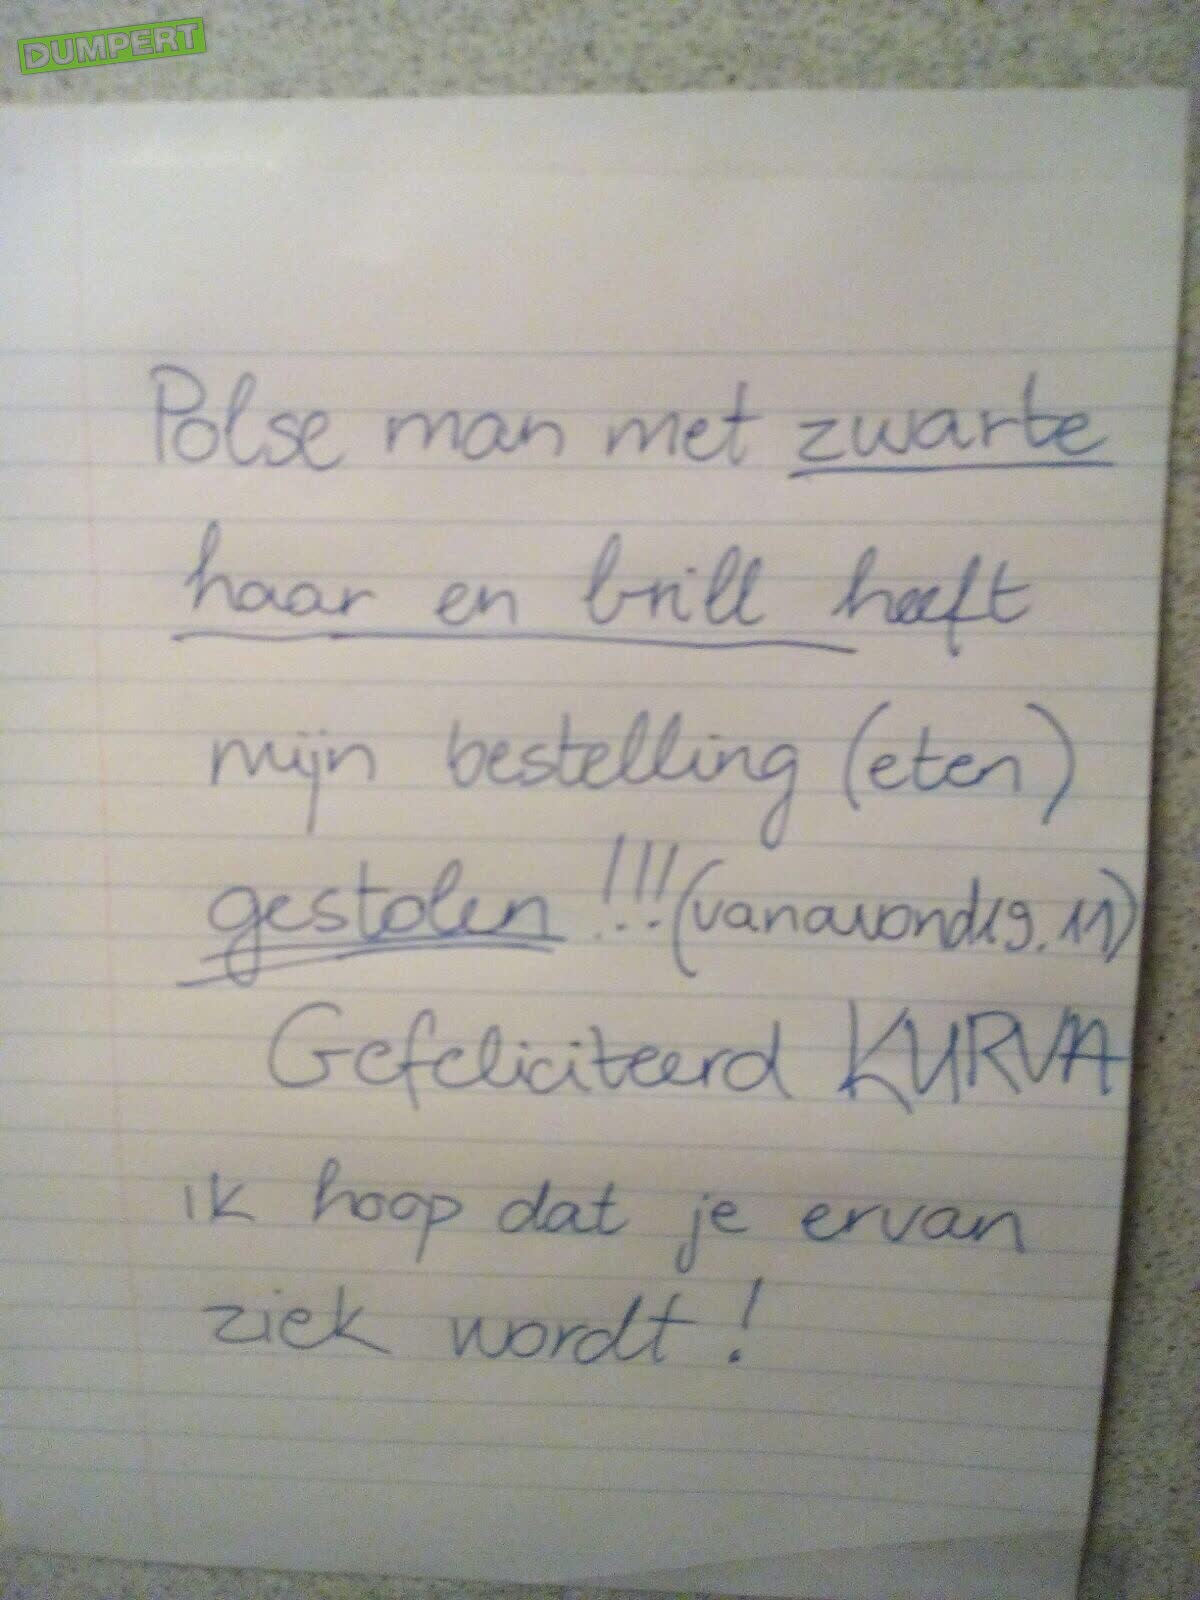 DUMPERT
Polse man met zwarte
haar en brill heeft
mijn bestelling (eten)
gestolen !!! (vanavond 19.11)
Gefeliciteerd KURVA
ik hoop dat je ervan
ziek wordt!